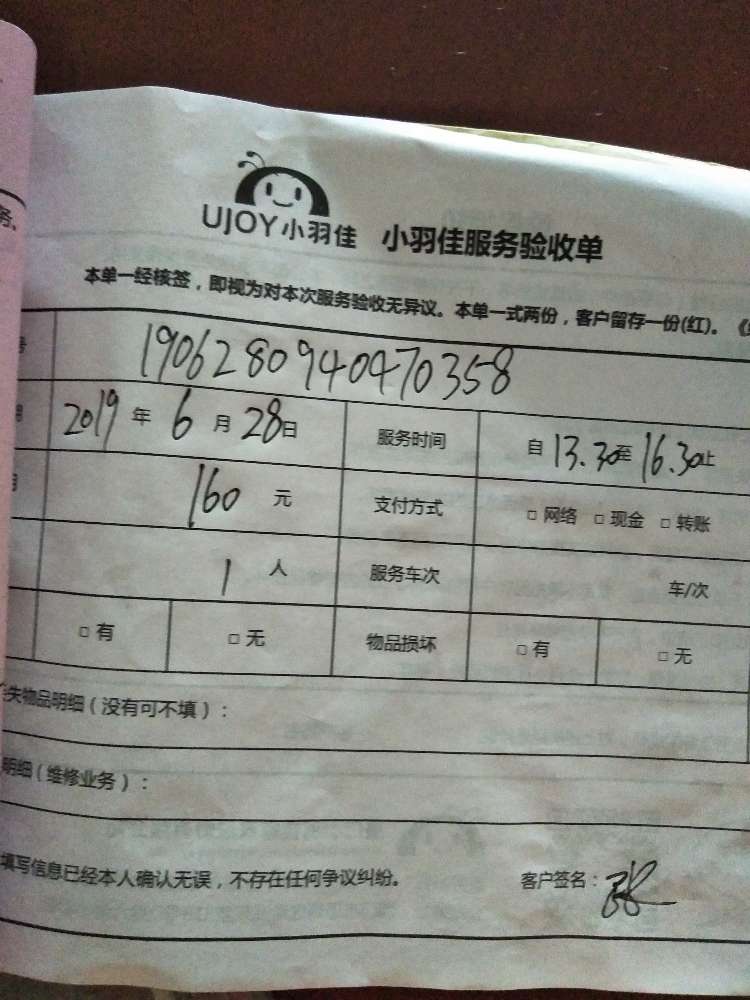 务。
UJOY小羽佳 小羽佳服务验收单
本单一经核签，即视为对本次服务验收无异议。本单一式两份，客户留存一份(红)。《
号 1906280940470358
期 2019 年 6 月 28 日 服务时间 自 13.30 至 16.30 止
用 160 元 支付方式 □ 网络 □ 现金 □ 转账
1 人 服务车次 车/次
□ 有 □ 无 物品损坏 □ 有 □ 无
失物品明细（没有可不填）：
明细（维修业务）：
填写信息已经本人确认无误，不存在任何争议纠纷。 客户签名：